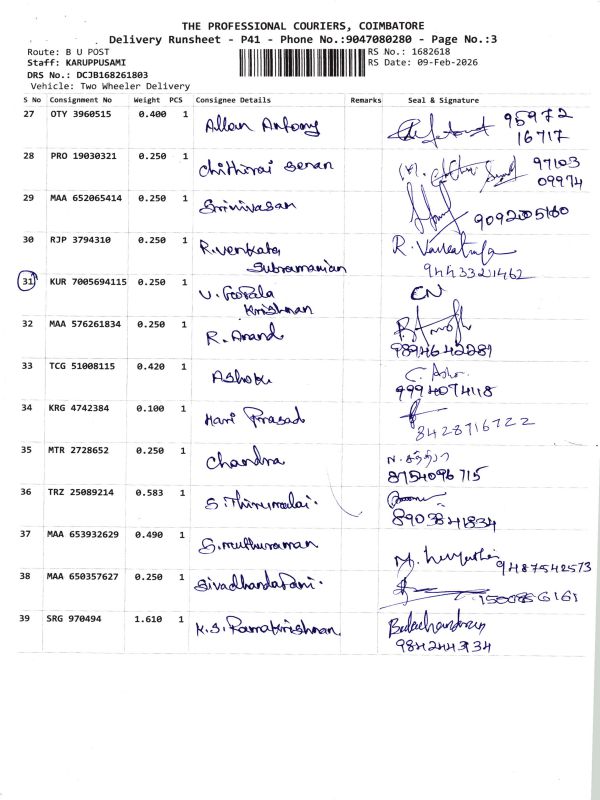 THE PROFESSIONAL COURIERS, COIMBATORE
Delivery Runsheet - P41 - Phone No.:9047080280 - Page No.:3
Route: B U POST
RS No.: 1682618
Staff: KARUPPUSAMI
RS Date: 09-Feb-2026
DRS No.: DCJB168261803
Vehicle: Two Wheeler Delivery
S No Consignment No Weight PCS Consignee Details Remarks Seal & Signature
27 OTY 3960515 0.400 1 Allan Antony 95972
16717
28 PRO 19030321 0.250 1 Chithirai Senan 97103
09974
29 MAA 652065414 0.250 1 Srinivasan 9092005160
30 RJP 3794310 0.250 1 R.Venkata R. Venkat
Subramanian 9443321462
31 KUR 7005694115 0.250 1 V. Gopala CN
Krishnan
32 MAA 576261834 0.250 1 R. Anand
9894642281
33 TCG 51008115 0.420 1 Ashok
9994074118
34 KRG 4742384 0.100 1 Hari Prasad
8428716722
35 MTR 2728652 0.250 1 Chandra
8754096715
36 TRZ 25089214 0.583 1 S. Thirumalai.
8903841834
37 MAA 653932629 0.490 1 S. muthuraman
9487542573
38 MAA 650357627 0.250 1 Sivadhandapani.
39 SRG 970494 1.610 1 K.S. Ramakrishnan Balachandran
9842443134